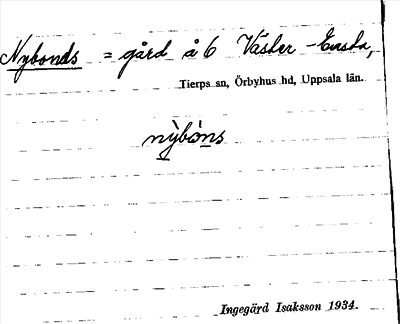 Nybonds = gård å 6 Väster-Ensta,
Tierps sn, Örbyhus hd, Uppsala län.
nỳbȯ́ns
Ingegärd Isaksson 1934.